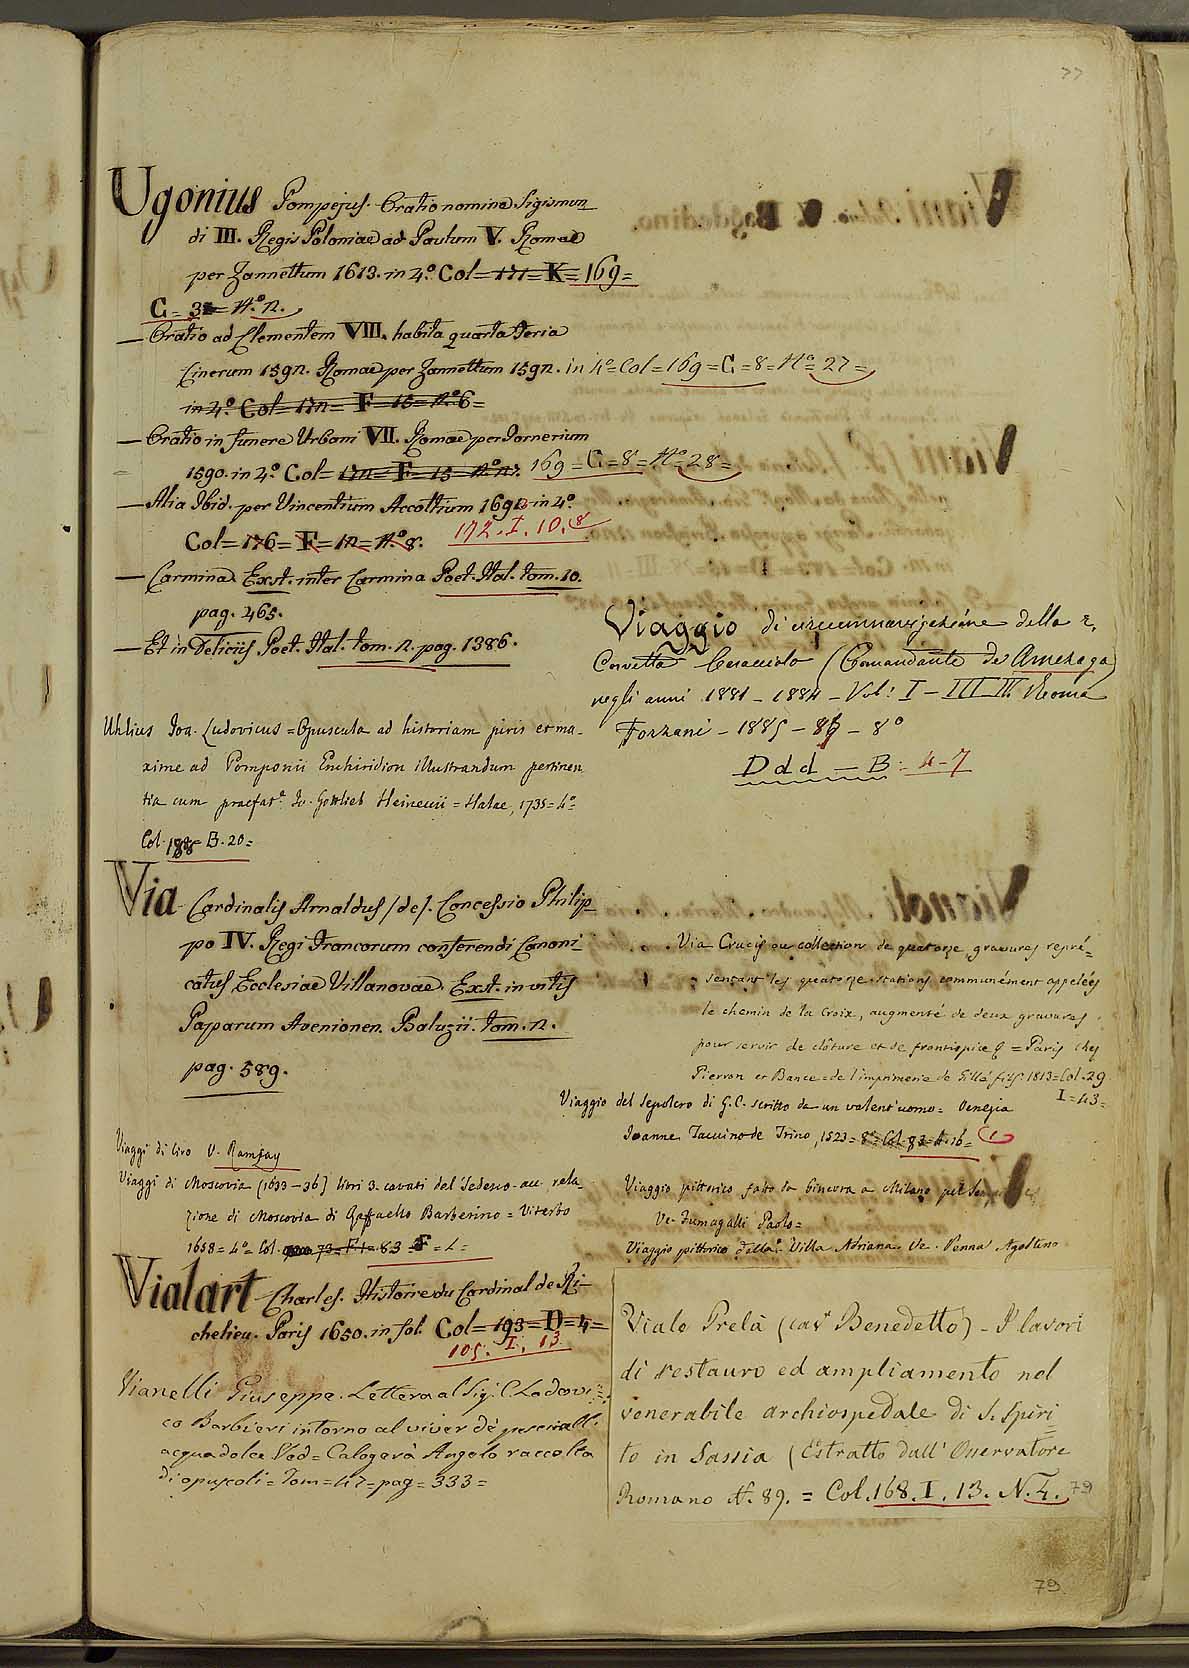 77
Ugonius Pompejus. Oratio nomine Sigismun
di III. Regis Poloniae ad Paulum V. Romae
per Zannettum 1613. in 4.° Col= 171= K= 169=
G= 3 = N.° 12.
— Oratio ad Clementem VIII. habita quarta Feria
Cinerum 1592. Romae per Zannettum 1592. in 4° Col= 169= G=8= N° 27=
in 4.° Col= 172= F= 15= N.° 6=
— Oratio in funere Urbani VII. Romae per Tornerium
1590. in 4.° Col= 172= F= 15 N.° 7. 169= G=8= N.° 28=
— Alia Ibid. per Vincentium Accoltium 1692 in 4.°
Col= 176= F= 12= N.° 8. 172. I. 10. 8
— Carmina. Exst. inter Carmina Poet. Ital. tom. 10.
pag. 465.
— Et in Deliciis Poet. Ital. tom. 2. pag. 1386.
Uhlius Ioa. Ludovicus = Opuscula ad historiam juris et ma-
xime ad Pomponii Enchiridion illustrandum pertinen
tia cum praefat.e Jo. Gottlieb Heineccii = Halae, 1735= 4°
Col. 188= B. 20=
Via Cardinalis Arnaldus /de/. Concessio Philip
po IV. Regi Francorum conferendi Canoni
catus Ecclesiae Villanovae. Exst. in vitis
Paparum Avenionen. Baluzii. tom. 2.
pag. 589.
Viaggi di Ciro V. Ramsay
Viaggi di Moscovia (1633-36) libri 3. cavati del Tedesco. acc. rela-
zione di Moscovia di Raffaello Barberino = Viterbo
1658= 4°= Col. 73= F 1= 83 F= 2=
Vialart Charles. Histoire du Cardinal de Ri-
chelieu. Paris 1650. in fol. Col= 193= D= 4=
105. I. 13
Vianelli Giuseppe. Lettera al Sig. C. Lodovi
co Barbieri intorno al viver de' pesci nell'
acqua dolce Ved= Calogerà Angelo raccolta
di opuscoli= Tom= 47= pag= 333=
Viaggio di circumnavigazione della r.
Corvetta Caracciolo (Comandante De Amezaga)
negli anni 1881 - 1884 - Vol: I - III Roma
Forzani - 1885 - 86 - 8°
Ddd — B: 4-7
Via Crucis ou collection de quatorze gravures repré=
sentant les quatorze stations communément appelées
le chemin de la Croix, augmenté de deux gravures
pour servir de clôture et de frontispice = Paris chez
Pierron et Bance= de l'imprimerie de Gillé fils 1813= Col. 29
I=43=
Viaggio del sepolcro di G. C. scritto da un valent'uomo= Venezia
Joanne Taccuino de Trino, 1523= 8°= Col. 83= A. 16=
Viaggio pittorico fatto da Ginevra a Milano pel Sempione
Ve. Fumagalli Paolo=
Viaggio pittorico della Villa Adriana. Ve. Penna Agostino
Viale Prelà (cav Benedetto) - I lavori
di restauro ed ampliamento nel
venerabile archiospedale di S. Spiri
to in Sassia (Estratto dall' Osservatore
Romano N. 89. = Col. 168. I. 13. N. 4. 79
79